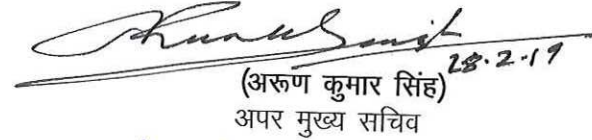 28.2.19
(अरूण कुमार सिंह)
अपर मुख्य सचिव